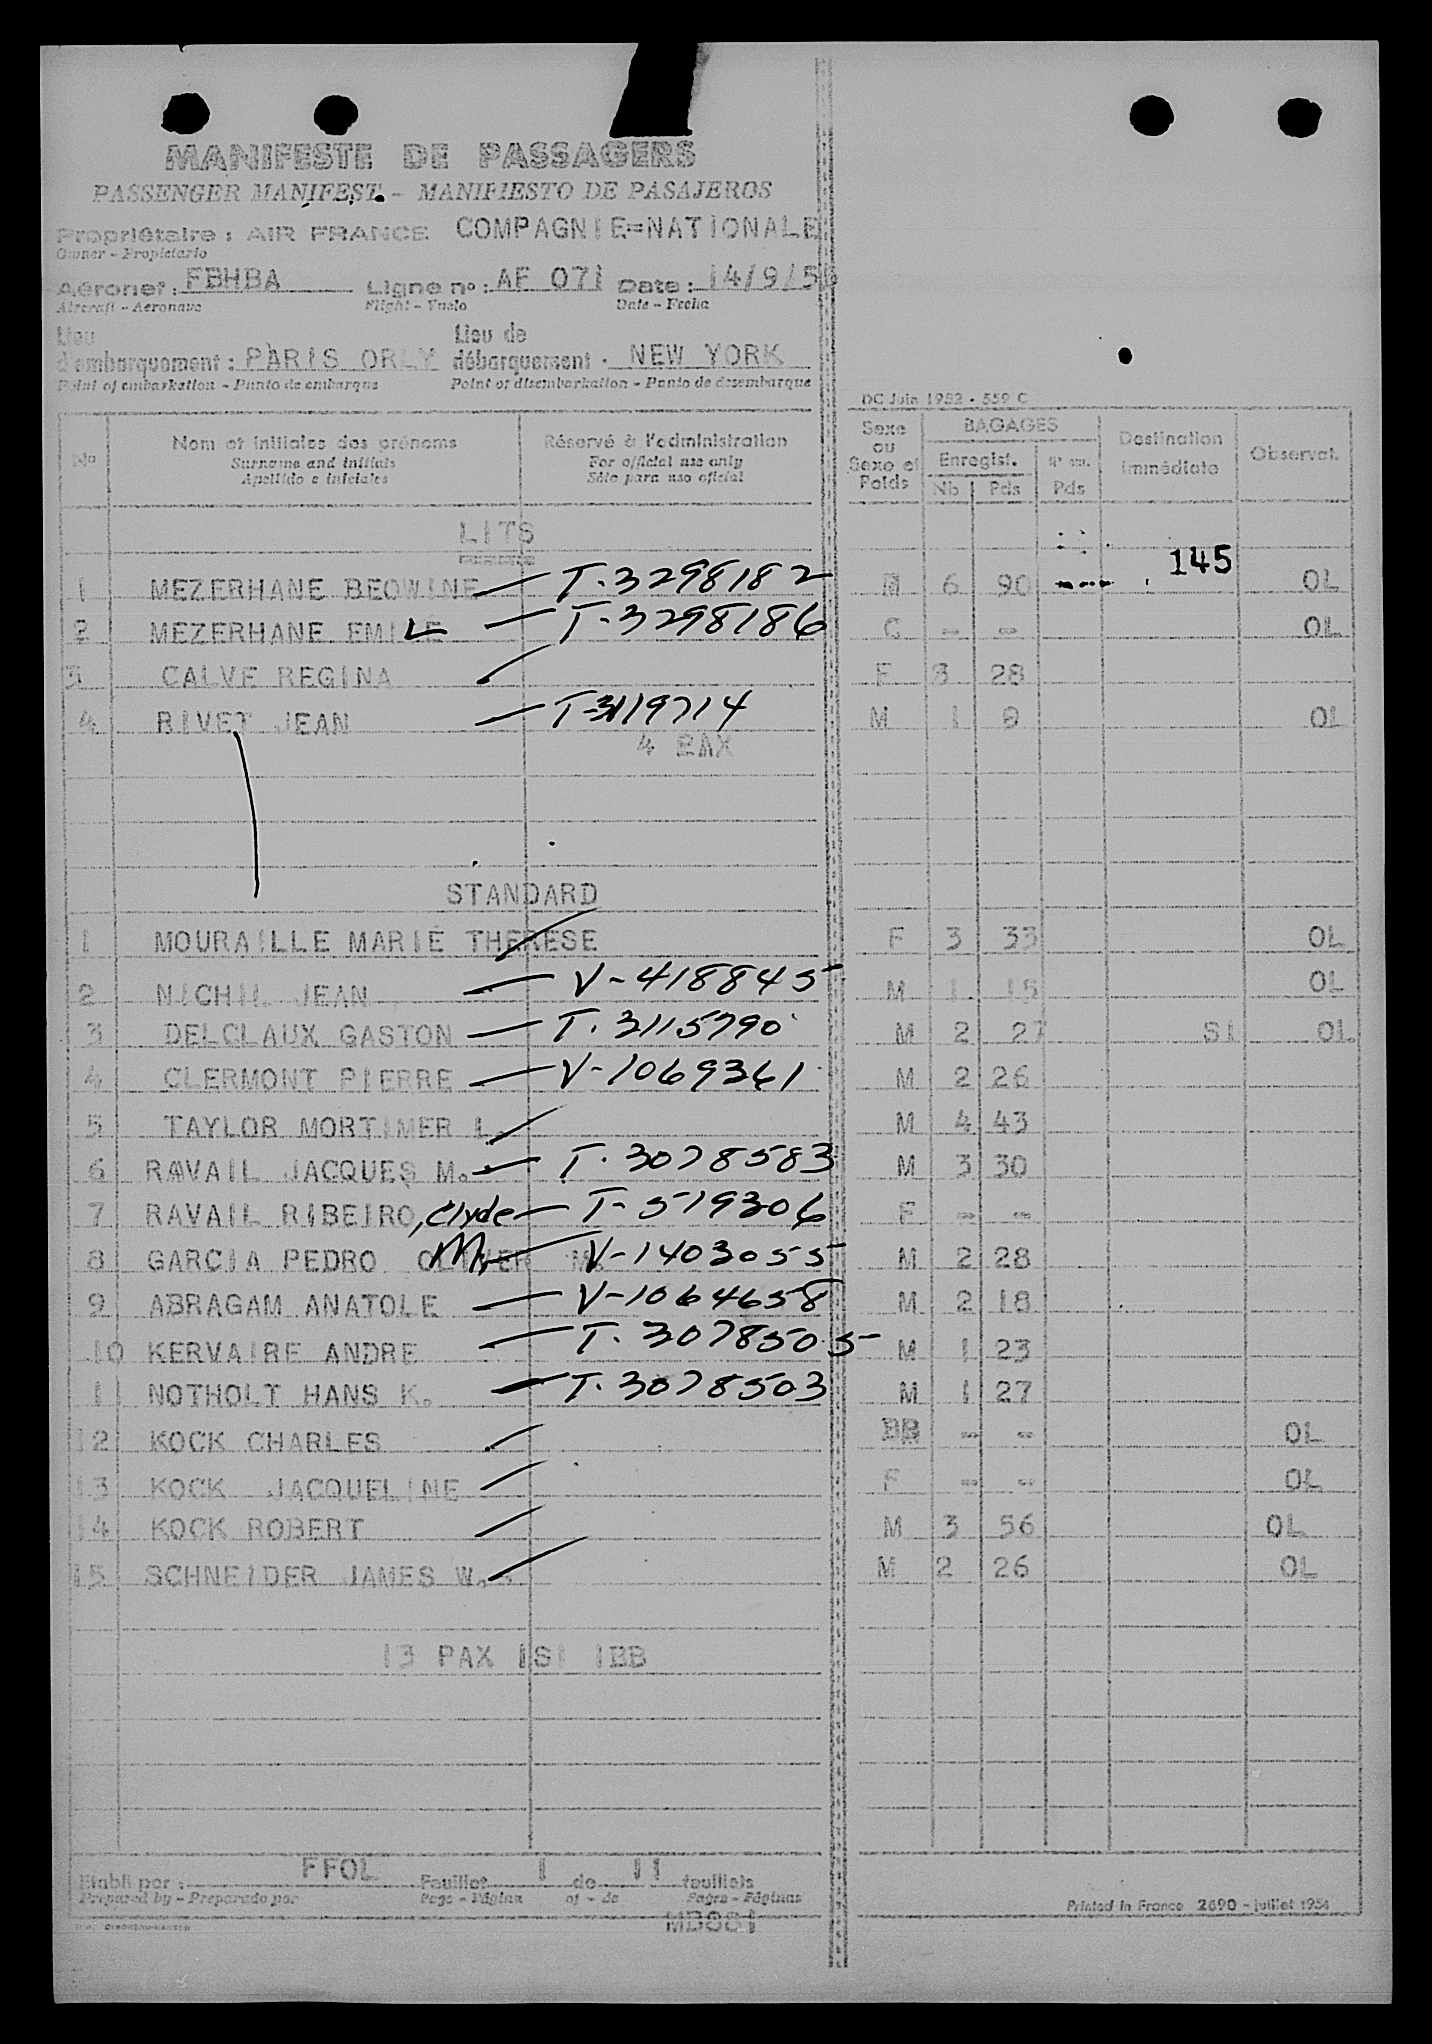 MANIFESTE DE PASSAGERS
PASSENGER MANIFEST - MANIFIESTO DE PASAJEROS
Propriétaire : AIR FRANCE COMPAGNIE=NATIONALE
Owner - Propietario
Aéronef : FBHBA Ligne no : AF 071 Date : 14/9/5
Aircraft - Aeronave Flight - Vuelo Date - Fecha
Lieu Lieu de
d'embarquement : PARIS ORLY débarquement : NEW YORK
Point of embarkation - Punto de embarque Point of disembarkation - Punto de desembarque
DC Juin 1952 - 559 C
No Nom et initiales des prénoms Réservé à l'administration Sexe ou Sexe et Poids BAGAGES Destination immédiate Observat.
Surname and initials For official use only Enregist. Pds
Apellido e iniciales Sólo para uso oficial Nb Pds
LITS
145
1 MEZERHANE BEOWINE T-3298182 M 6 90 OL
2 MEZERHANE EMILE T-3298186 C - - OL
3 CALVE REGINA F 3 28
4 RIVET JEAN T-3119714 M 1 9 OL
4 PAX
STANDARD
1 MOURAILLE MARIE THERESE F 3 33 OL
2 NICHIL JEAN V-4188455 M 1 15 OL
3 DELCLAUX GASTON T-3115790 M 2 27 S1 OL
4 CLERMONT PIERRE V-1069361 M 2 26
5 TAYLOR MORTIMER L. M 4 43
6 RAVAIL JACQUES M. T-3078583 M 3 30
7 RAVAIL RIBEIRO, Clyde T-519306 F - -
8 GARCIA PEDRO OLIVER M. V-1403055 M 2 28
9 ABRAGAM ANATOLE V-1064658 M 2 18
10 KERVAIRE ANDRE T-3078505 M 1 23
1 NOTHOLT HANS K. T-3078503 M 1 27
12 KOCK CHARLES BB - - OL
13 KOCK JACQUELINE F - - OL
14 KOCK ROBERT M 3 56 OL
15 SCHNEIDER JAMES W. M 2 26 OL
13 PAX 1S1 1BB
Etabli par : FFOL Feuillet 1 de 11 feuillets
Prepared by - Preparado por Page - Página of - de Pages - Páginas
Printed in France 2690 - juillet 1954
MB881